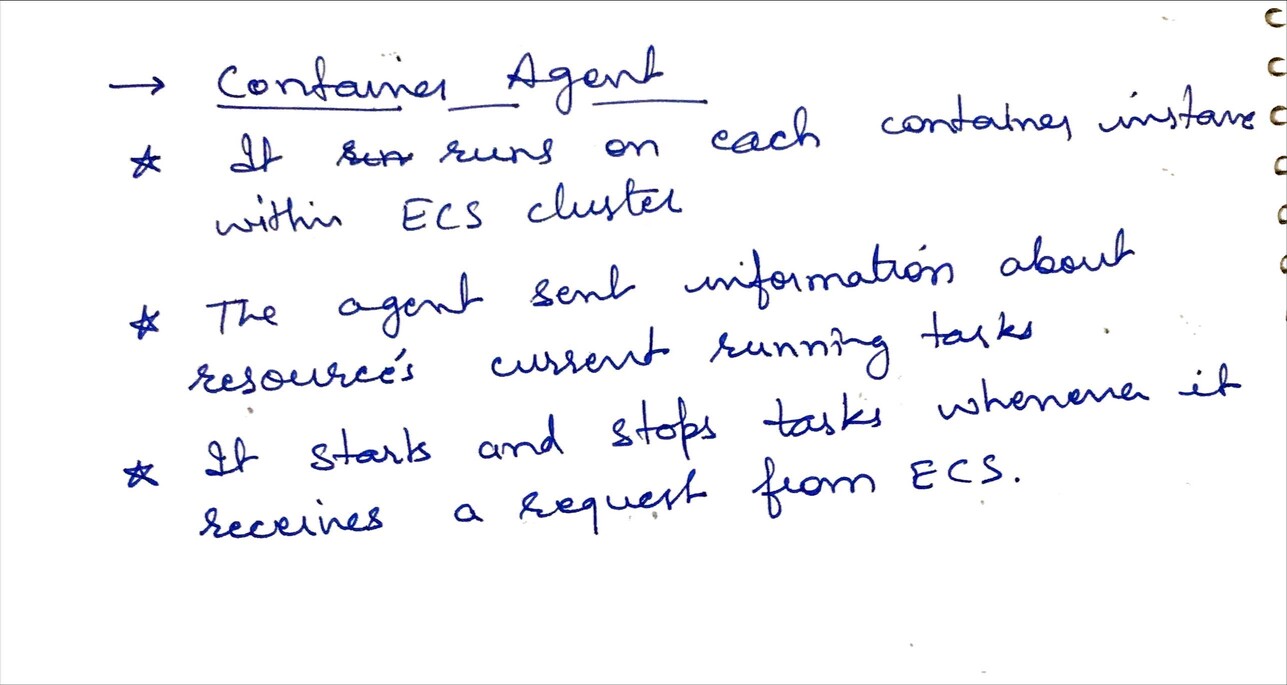 → Container Agent
* It run runs on each container instance
within ECS cluster
* The agent sent information about
resource's current running tasks
* It starts and stops tasks whenever it
receives a request from ECS.